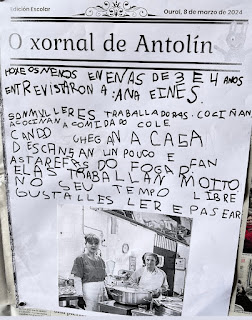 Edición Escolar
Oural, 8 de marzo de 2024
O xornal de Antolín
HOXE OS NENOS EN ENAS DE 3 E 4 ANOS
ENTREVISTARON A: ANA E INES.
SON MULLERES TRABALLADORAS. COCIÑAN
A COMIDA DO COLE
CANDO CHEGAN A CASA
DESCANSAN UN POUCO E FAN
AS TAREFAS DO FOGAR
ELAS TRABALLAN MOITO
NO SEU TEMPO LIBRE
GUSTALLES LER E PASEAR